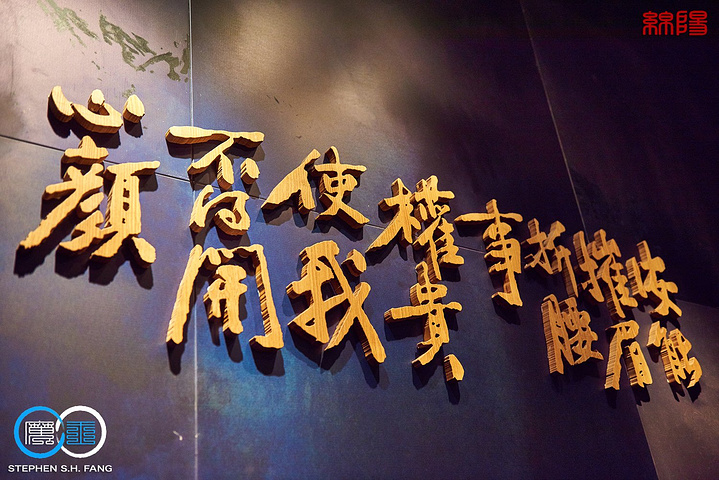 安能
摧眉
折腰
事
權貴、
使我
不得開
心顏
STEPHEN S.H. FANG